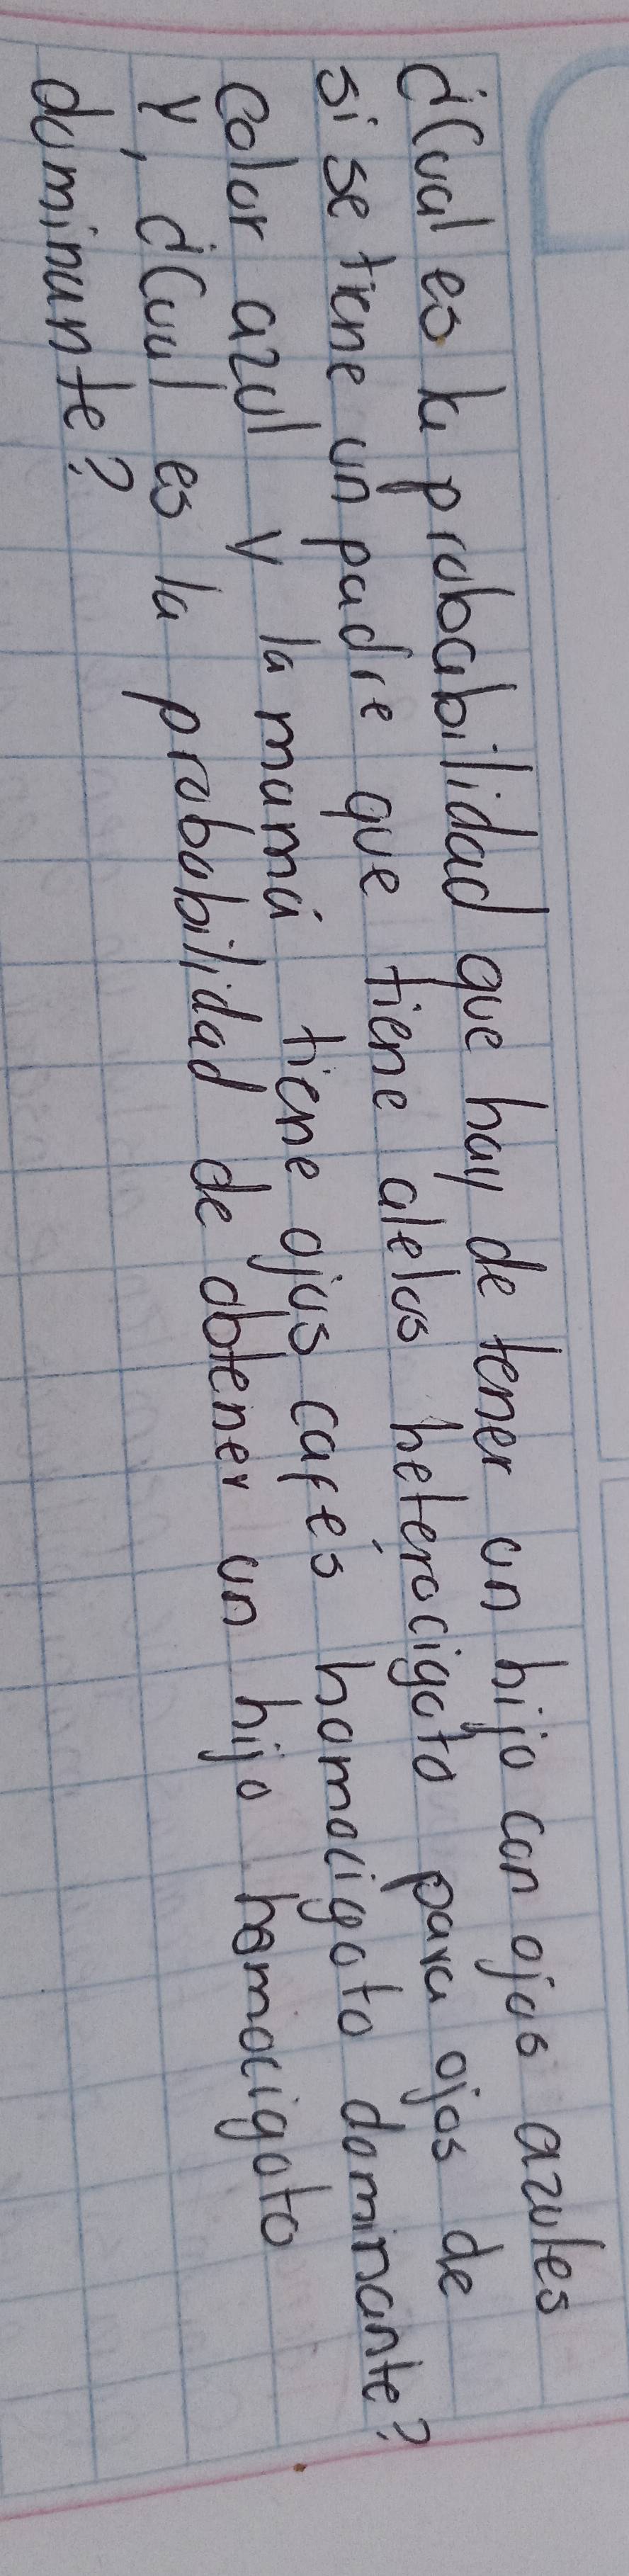 ¿Cual es la probabilidad que hay de tener un hijo con ojos azules
si se tiene un padre que tiene alelos heterocigoto para ojos de
color azul y la mamá tiene ojos cafes homocigoto dominante?
y, ¿Cual es la probabilidad de obtener un hijo homocigoto
dominante?